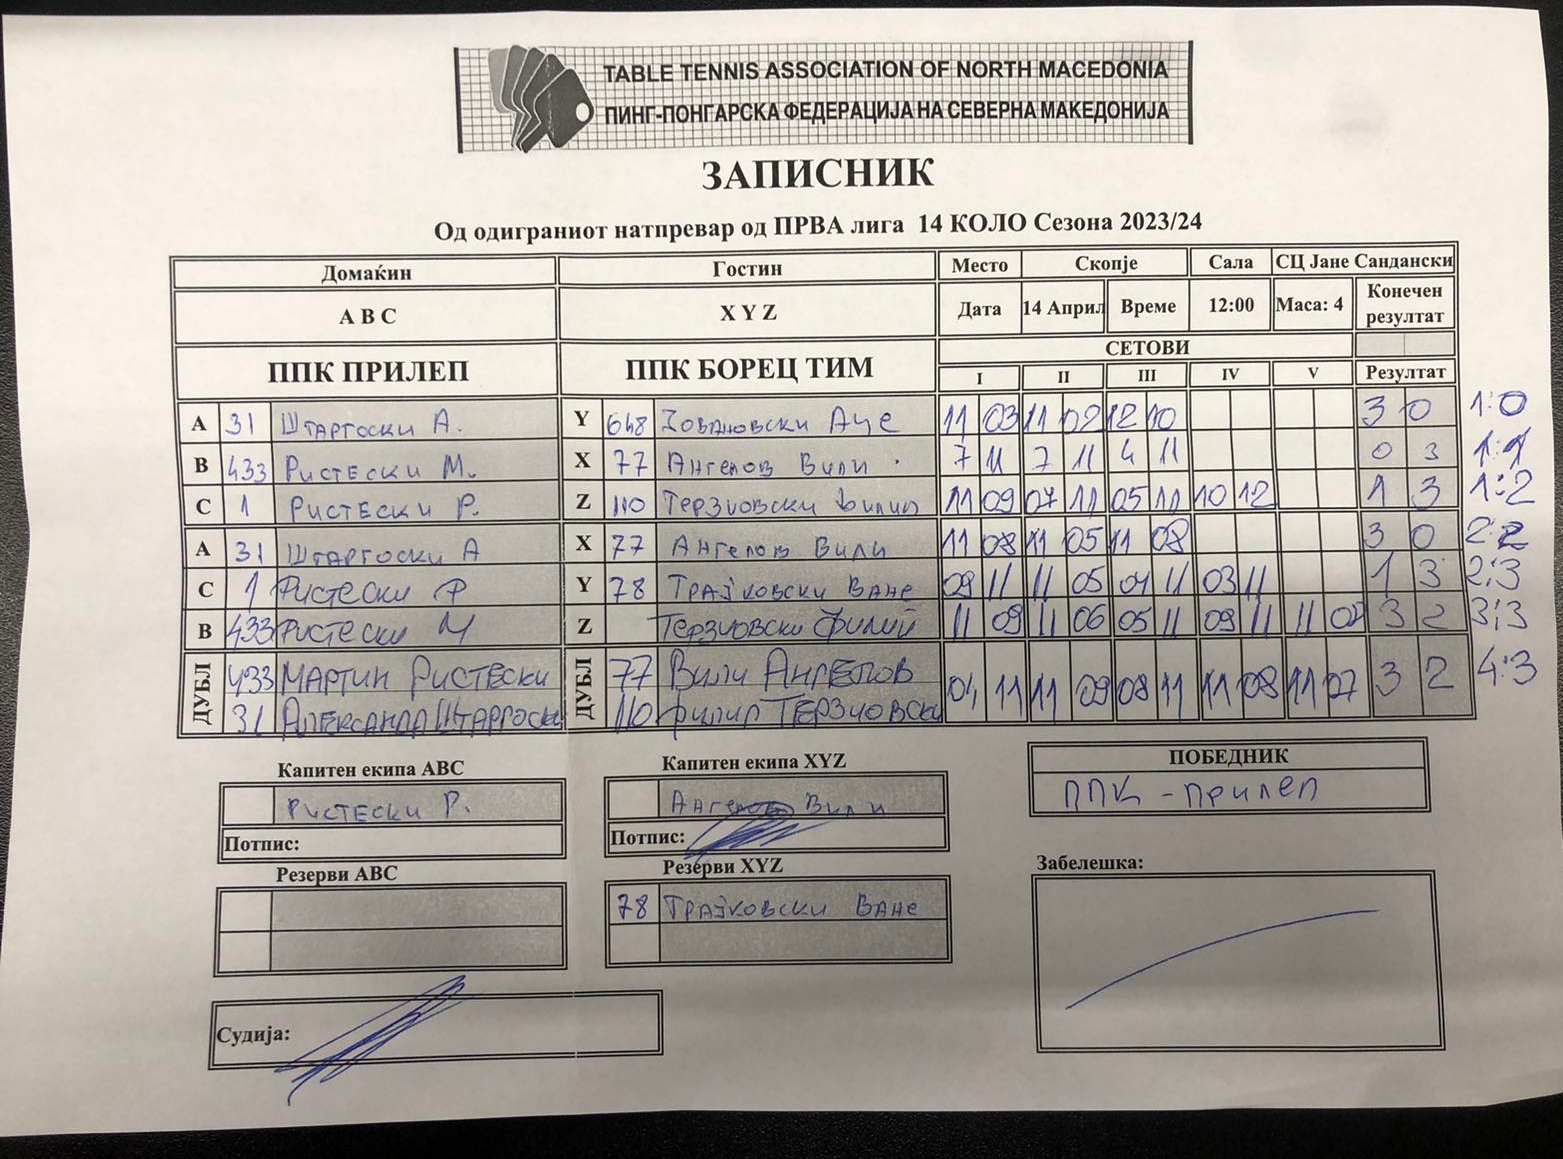 TABLE TENNIS ASSOCIATION OF NORTH MACEDONIA
ПИНГ-ПОНГАРСКА ФЕДЕРАЦИЈА НА СЕВЕРНА МАКЕДОНИЈА
ЗАПИСНИК
Од одиграниот натпревар од ПРВА лига 14 КОЛО Сезона 2023/24
Домаќин Гостин Место Скопје Сала СЦ Јане Сандански
A B C X Y Z Дата 14 Април Време 12:00 Маса: 4 Конечен резултат
ППК ПРИЛЕП ППК БОРЕЦ ТИМ СЕТОВИ
I II III IV V Резултат
A 31 Штаргоски А. Y 648 Јовановски Аце 11 03 11 02 12 10 3 0 1:0
B 433 Ристески М. X 77 Ангелов Вили 7 11 7 11 4 11 0 3 1:1
C 1 Ристески Р. Z 110 Терзиовски Филип 11 09 07 11 05 11 10 12 1 3 1:2
A 31 Штаргоски А X 77 Ангелов Вили 11 08 11 05 11 08 3 0 2:2
C 1 Ристески Р Y 78 Трајковски Ване 09 11 11 05 04 11 03 11 1 3 2:3
B 433 Ристески М Z Терзиовски Филип 11 09 11 06 05 11 09 11 11 3 2 3:3
ДУБЛ 433 МАРТИН РИСТЕСКИ ДУБЛ 77 ВИЛИ АНГЕЛОВ 04 11 11 09 08 11 11 08 11 07 3 2 4:3
31 АЛЕКСАНДА ШТАРГОСКИ 110 ФИЛИП ТЕРЗИОВСКИ
Капитен екипа ABC Капитен екипа XYZ ПОБЕДНИК
Ристески Р. Ангелов Вили ППК - Прилеп
Потпис: Потпис:
Резерви ABC Резерви XYZ Забелешка:
78 Трајковски Ване
Судија: